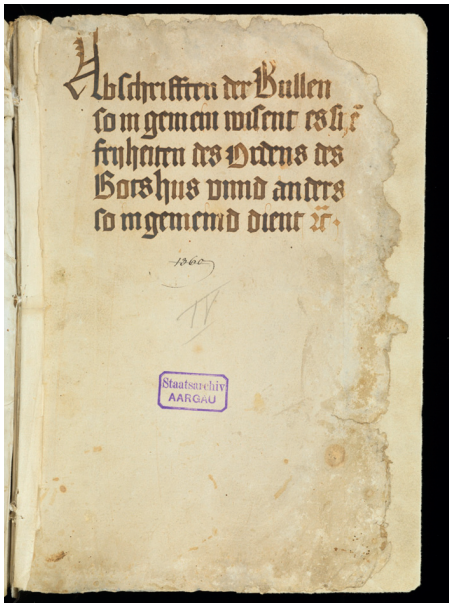 Abschrifften der Bullen
so in gemein wisent es sÿe
fryheiten des Ordens des
Gotshus vnnd anders
so in gemeind dient ꝛc̃.
1360
IV
Staatsarchiv
AARGAU